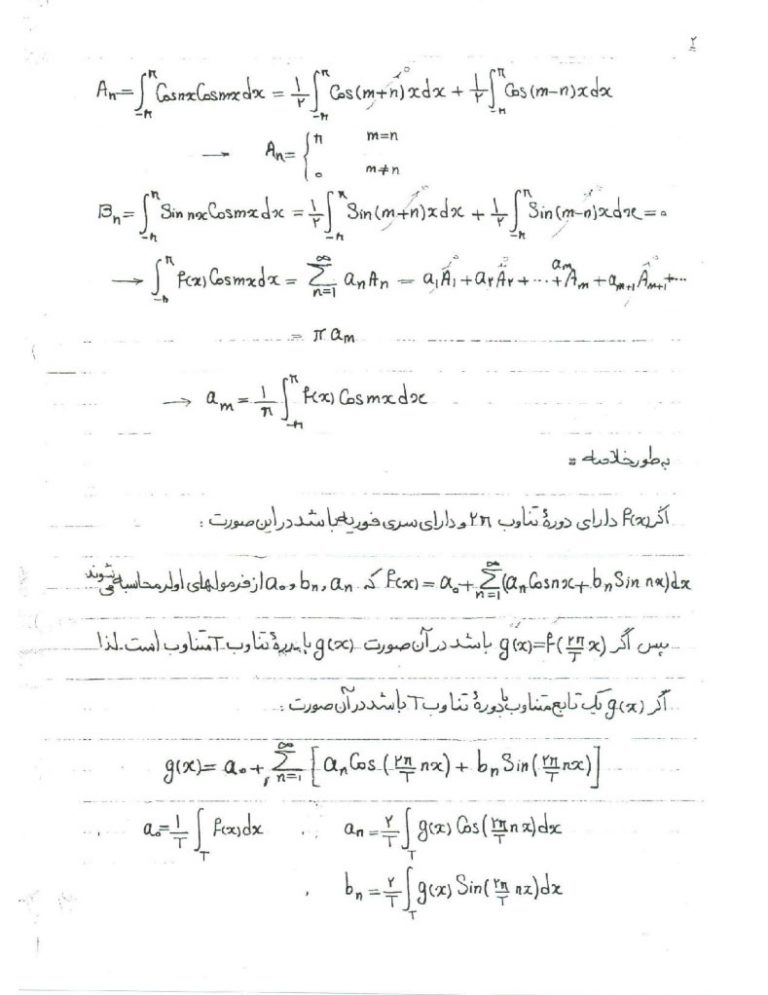 ۲
Aₙ = ∫_{-π}^{π} Cosnx Cosmx dx = ۱/۲ ∫_{-π}^{π} Cos(m+n)xdx + ۱/۲ ∫_{-π}^{π} Cos(m-n)xdx
→ Aₙ = { π m=n
۰ m≠n
Bₙ = ∫_{-π}^{π} Sin nx Cosmx dx = ۱/۲ ∫_{-π}^{π} Sin(m+n)xdx + ۱/۲ ∫_{-π}^{π} Sin(m-n)xdx = ۰
→ ∫_{-π}^{π} f(x) Cosmxdx = ∑_{n=1}^{∞} aₙAₙ = a₁A₁ + a۲A۲ + ... + a_m A_m + a_{m+1} A_{m+1} + ...
= π a_m
→ a_m = 1/π ∫_{-π}^{π} f(x) Cosmx dx
بطور خلاصه =
اگر f(x) دارای دورهٔ تناوب ۲π و دارای سری فوریه باشد در این صورت :
f(x) = a₀ + ∑_{n=1}^{∞} (aₙ Cosnx + bₙ Sin nx)dx که aₙ , bₙ , a₀ از فرمولهای اولر محاسبه می شوند
پس اگر g(x) = f(۲π/T x) باشد در آن صورت g(x) با دورهٔ تناوب T متناوب است. لذا
اگر g(x) یک تابع متناوب با دورهٔ تناوب T باشد در آن صورت :
g(x) = a₀ + ∑_{n=1}^{∞} [aₙ Cos(۲π/T nx) + bₙ Sin(۲π/T nx)]
a₀ = 1/T ∫_T f(x)dx , aₙ = ۲/T ∫_T g(x) Cos(۲π/T nx)dx
, bₙ = ۲/T ∫_T g(x) Sin(۲π/T nx)dx